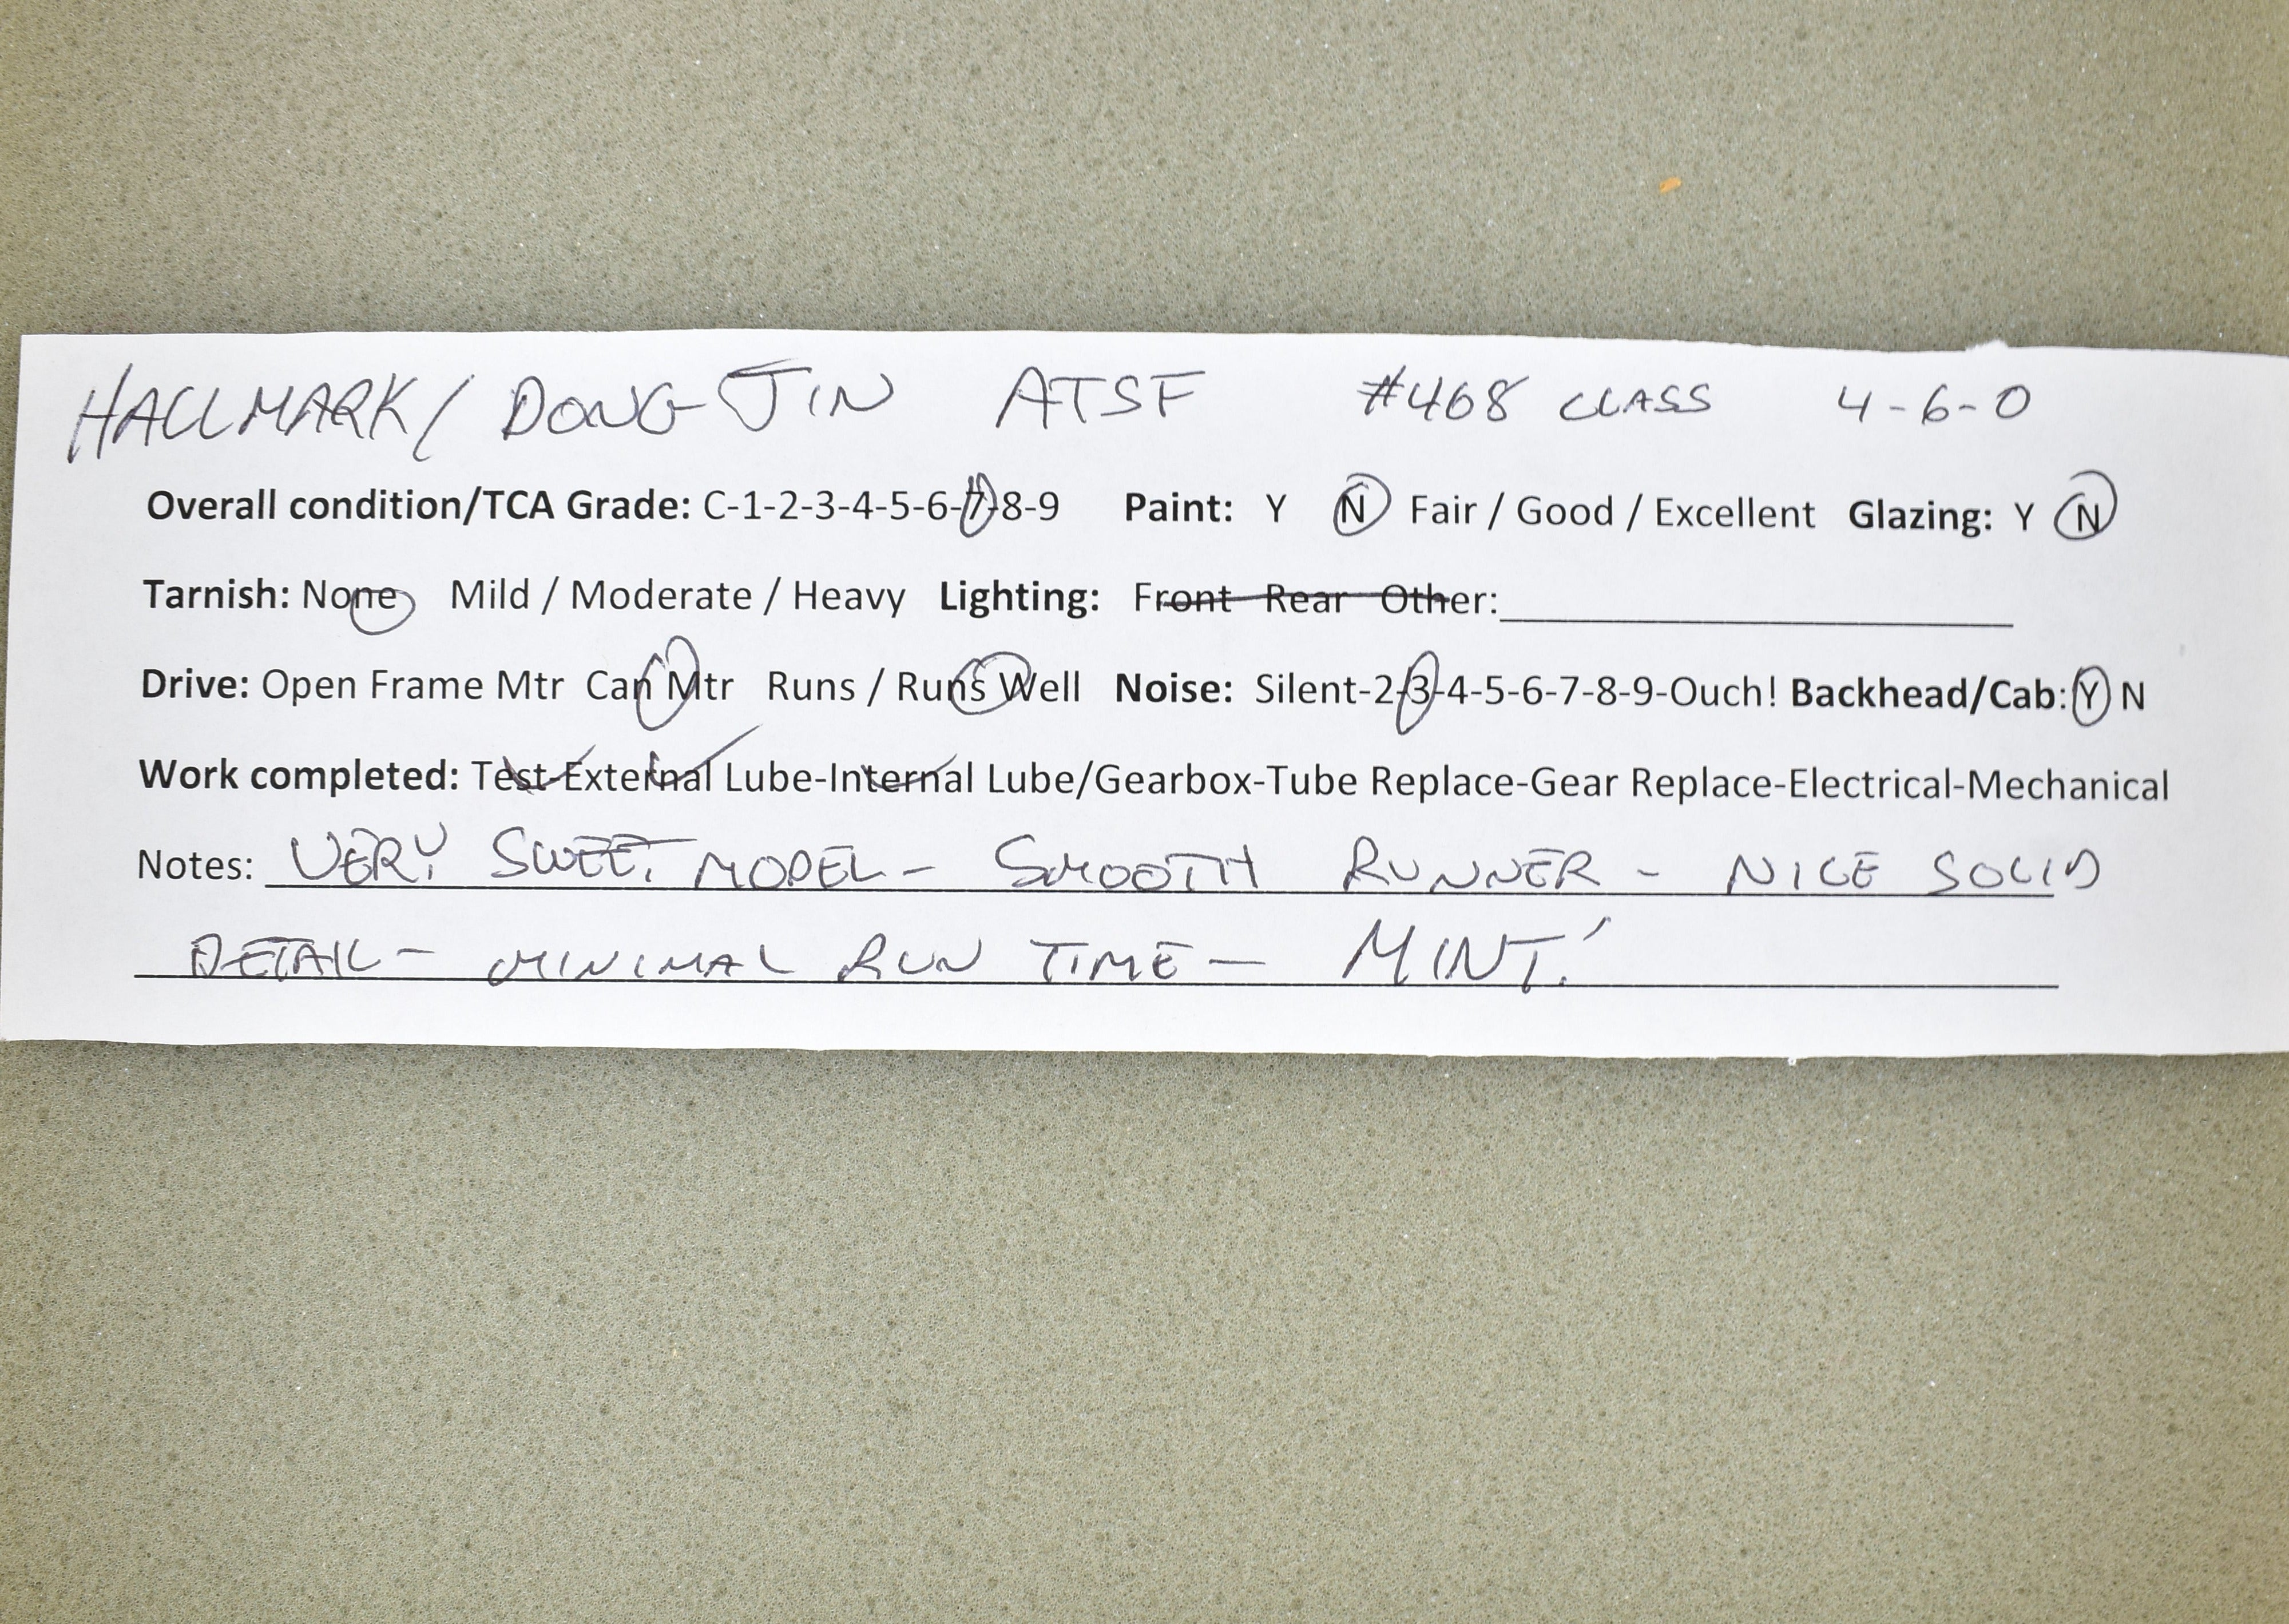 HALLMARK / DONG JIN ATSF #468 CLASS 4-6-0
Overall condition/TCA Grade: C-1-2-3-4-5-6-7-8-9 Paint: Y N Fair / Good / Excellent Glazing: Y N
Tarnish: None Mild / Moderate / Heavy Lighting: Front Rear Other:
Drive: Open Frame Mtr Can Mtr Runs / Runs Well Noise: Silent-2-3-4-5-6-7-8-9-Ouch! Backhead/Cab: Y N
Work completed: Test-External Lube-Internal Lube/Gearbox-Tube Replace-Gear Replace-Electrical-Mechanical
Notes: VERY SWEET MODEL - SMOOTH RUNNER - NICE SOLID
DETAIL - MINIMAL RUN TIME - MINT!